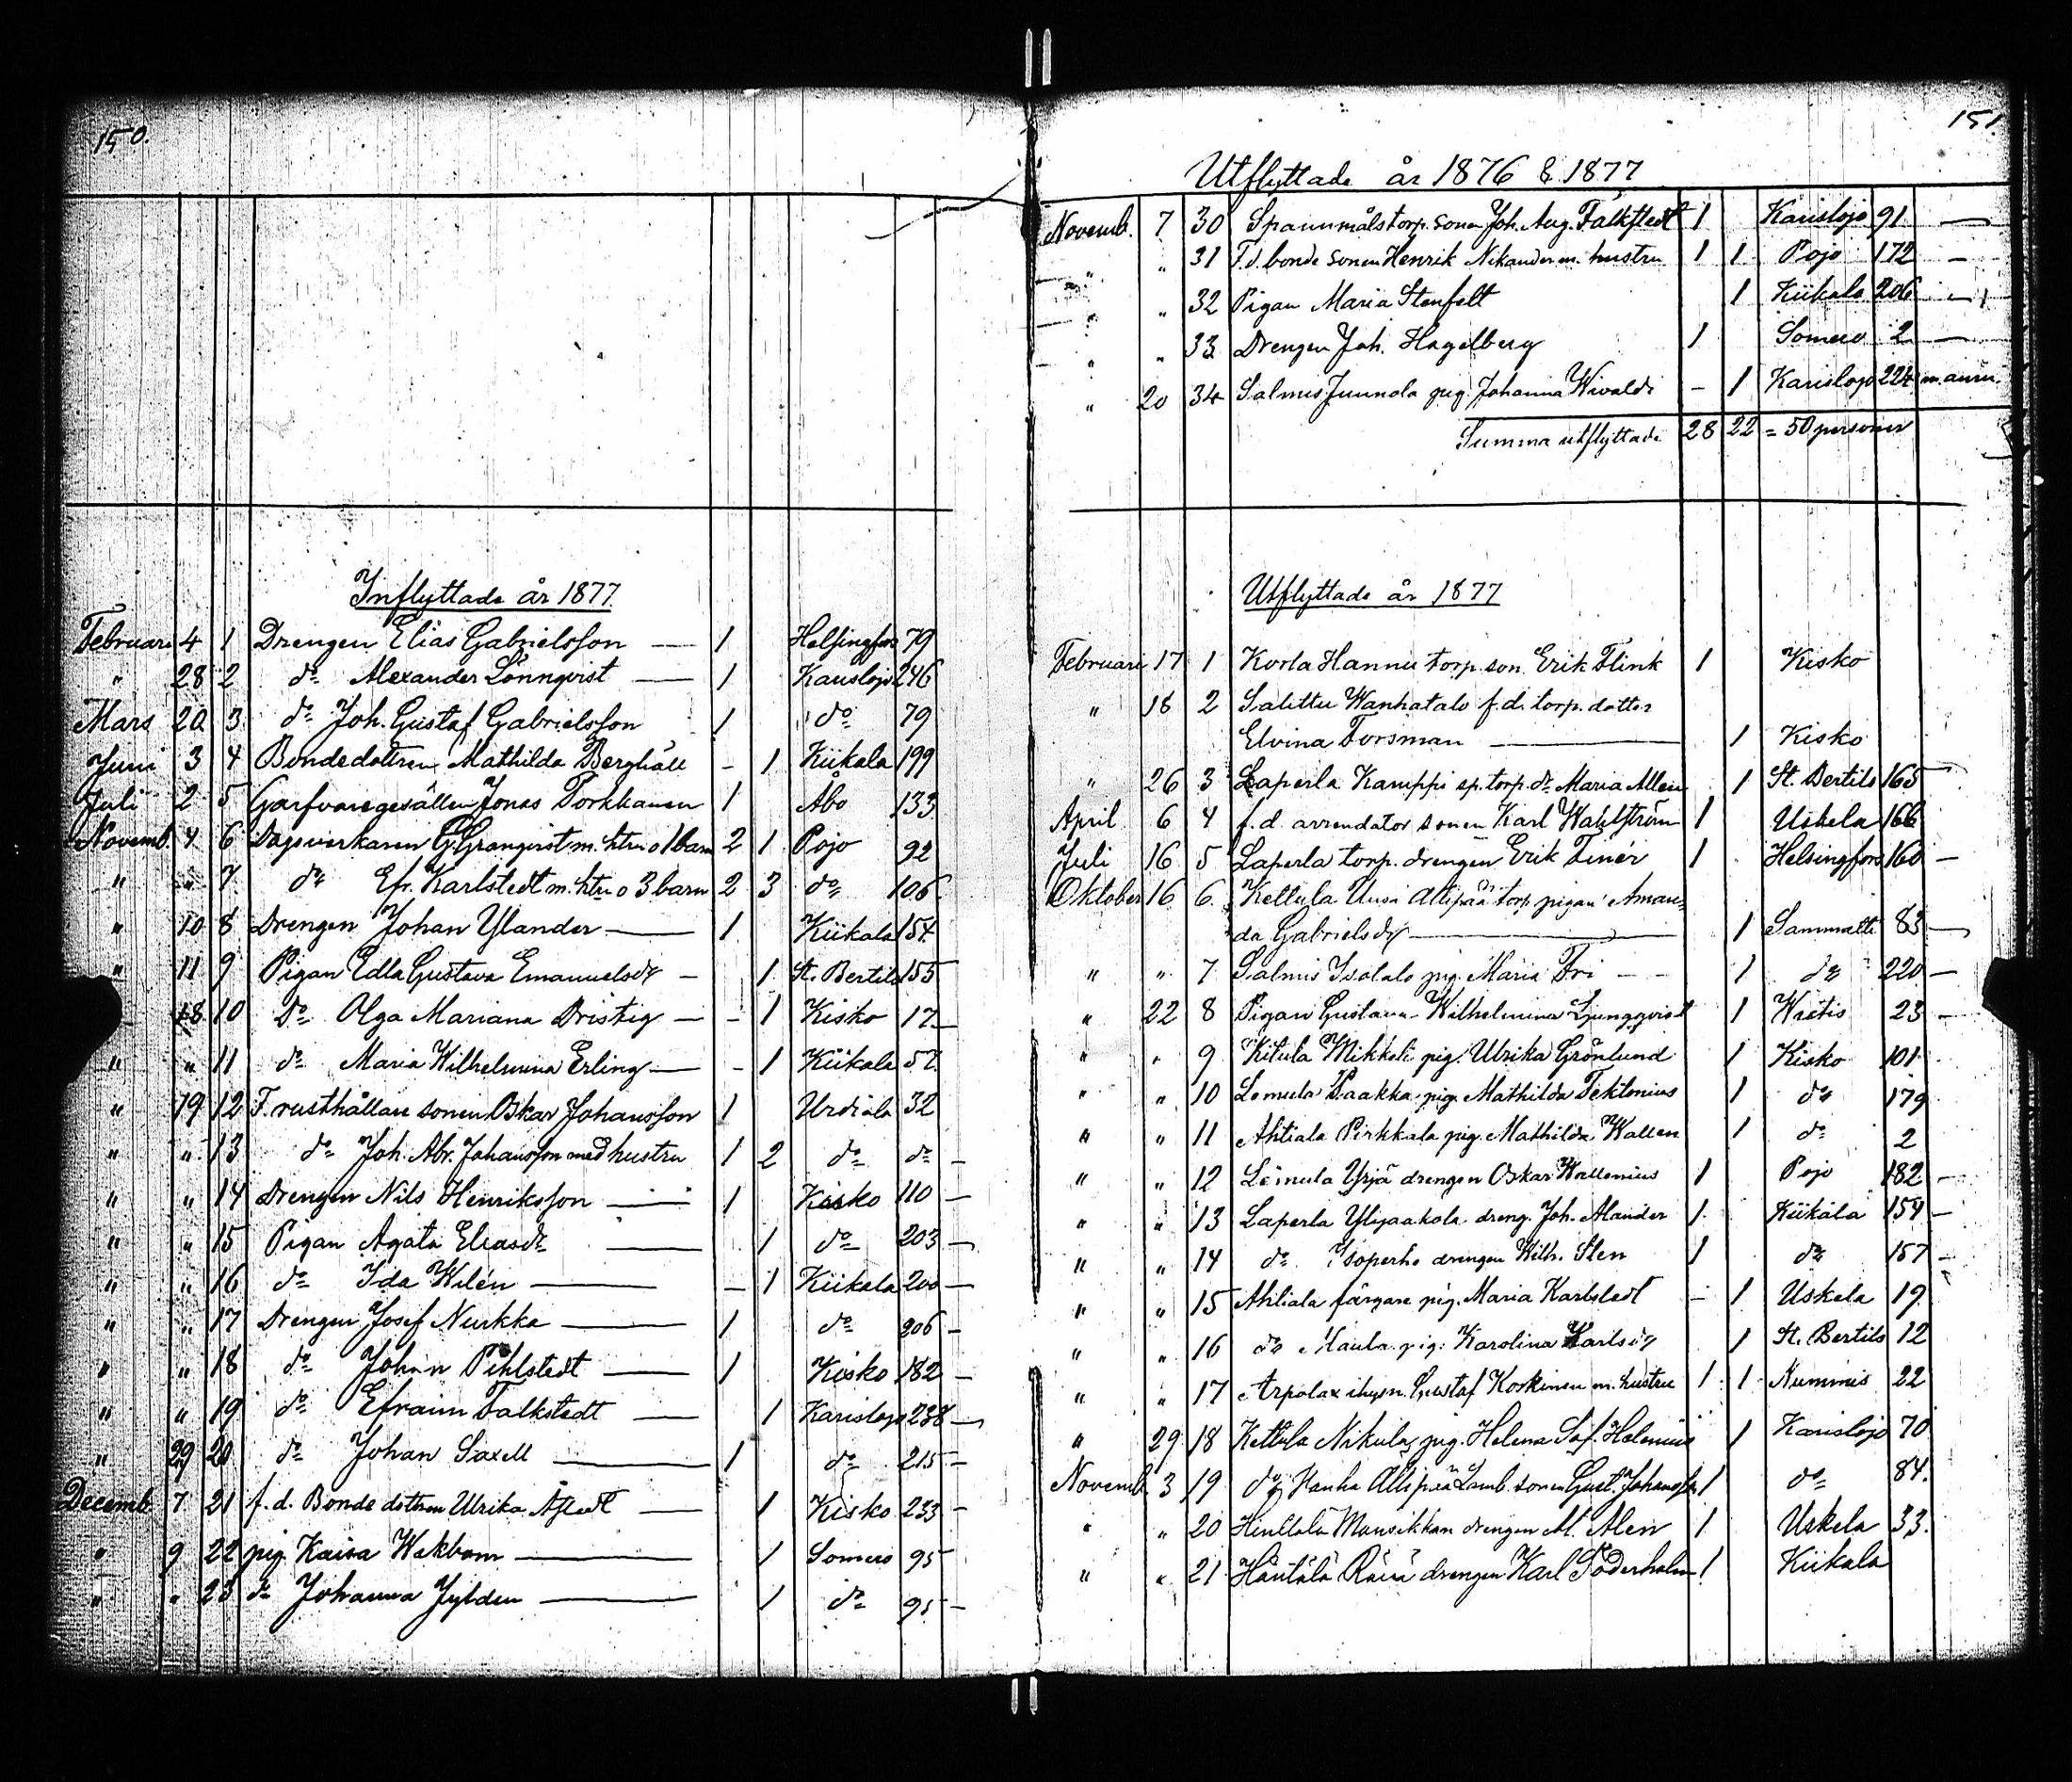 150.
Inflyttade år 1877
Februari 4 1 Drengen Elias Gabrielsson — 1 Helsingfors 79
" 28 2 do Alexander Lönnqvist — 1 Karislojo 246
Mars 20 3 do Joh. Gustaf Gabrielsson 1 do 79
Juni 3 4 Bondedottren Mathilda Berghäll - 1 Kiikala 199
Juli 2 5 Garfvaregesällen Jonas Torkkanen 1 Åbo 133
Novemb. 4 6 Dagsverkaren G. Granqvist m. htru o 1 barn 2 1 Pojo 92
" " 7 do Efr. Karlstedt m. htru o 3 barn 2 3 do 106
" 10 8 Drengen Johan Ylander — 1 Kiikala 154
" 11 9 Pigan Edla Gustava Emanuelsdr - 1 St. Bertils 155
18 10 Do Olga Mariana Dristig — - 1 Kisko 17 —
" " 11 do Maria Wilhelmina Erling — - 1 Kiikala 57
" 19 12 F. rusthållare sonen Oskar Johansson 1 Urdiala 32
" " 13 do Joh. Abr. Johansson med hustru 1 2 do do -
" " 14 Drengen Nils Henriksson — 1 Kisko 110 —
" " 15 Pigan Agata Eliasdr — 1 do 203 —
" " 16 do Ida Wilén — - 1 Kiikala 200 —
" " 17 Drengen Josef Nurkka — 1 do 206 -
" " 18 do Johan Pihlstedt — 1 Kisko 182 -
" " 19 do Efraim Falkstedt — 1 Karislojo 238 —
" 29 20 do Johan Saxell — 1 do 215 -
Decemb. 7 21 f. d. Bonde dottren Ulrika — 1 Kisko 233 -
" 9 22 pig. Kaisa Wakbom — 1 Somero 95 -
" " 23 do Johanna Jylden — 1 do 95 -
151.
Utflyttade år 1876 & 1877
Novemb. 7 30 Spannmålstorp. sonen Joh. Aug. Falkstedt 1 Karislojo 91 —
" " 31 F. d. bonde sonen Henrik Nikander m. hustru 1 1 Pojo 172 -
" " 32 Pigan Maria Stenfelt 1 Kiikala 206 —
" " 33 Drengen Joh. Hagelberg 1 Somero 2 —
" 20 34 Salmis Juunola pig. Johanna Wivaldi - 1 Karislojo 224 m.
Summa utflyttade 28 22 = 50 personer
Utflyttade år 1877
Februari 17 1 Korla Hannu torp. son. Erik Flink 1 Kisko
" 18 2 Salittu Wanhatalo f. d. torp. dotter
Elvina Forsman — 1 Kisko
" 26 3 Laperla Kamppi sp. torp. dr Maria Allen 1 St. Bertils 165
April 6 4 f. d. arrendator sonen Karl Wahlström 1 Uskela 166
Juli 16 5 Laperla torp. drengen Erik Finér 1 Helsingfors 160 —
Oktober 16 6 Kettula Uusi Allipää torp pigan Aman=
da Gabrielsdr — 1 Sammatti 83 —
" " 7 Salmis Isotalo pig. Maria Fri - - 1 do 220 —
" 22 8 Pigan Gustava Wilhelmina Ljungqvist 1 Wichtis 23 -
" " 9 Kitula Mikkeli pig. Ulrika Grönlund 1 Kisko 101 -
" " 10 Lemula Paakka pig. Mathilda Tektonius 1 do 179
" " 11 Ahtiala Pirkkala pig. Mathilda Wallen 1 do 2
" " 12 Lemula Yrjä drengen Oskar Wallenius 1 Pojo 182 -
" " 13 Laperla Ylijaakola dreng. Joh. Alander 1 Kiikala 154 —
" " 14 do Isoperho drengen Wilh. Sten 1 do 157 -
" " 15 Ahtiala färgare pig. Maria Karlstedt - 1 Uskela 19
" " 16 do Maula pig. Karolina Karlsdr 1 St. Bertils 12
" " 17 Arpalax ihysn. Gustaf Koskinen m. hustru 1 1 Nummis 22
" 29 18 Kettula Nikula pig. Helena Sof. Helenius 1 Karislojo 70
Novemb. 3 19 do Hanha Allipää Lamb. sonen Gust. Johansson 1 do 84
" " 20 Hintala Mansikkan drengen M. Alen 1 Uskela 33.
" " 21 Häntälä drengen Karl Söderholm 1 Kiikala